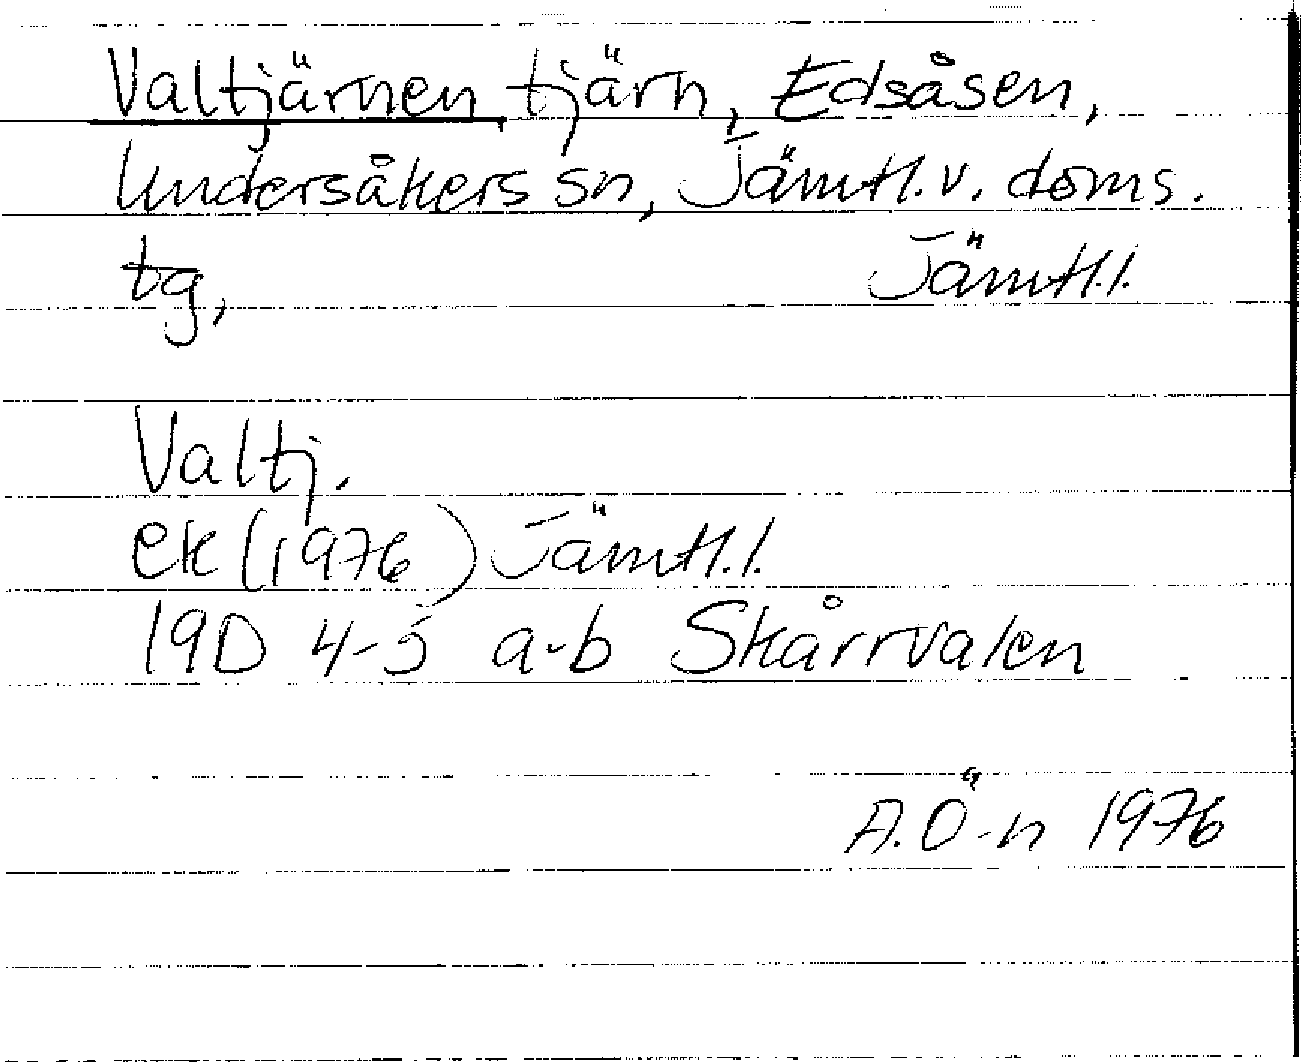 Valtjärnen tjärn, Edsåsen,
Undersåkers sn, Jämtl. v. doms.
tg, Jämtl. l.
Valtj.
ek (1976) Jämtl. l.
19D 4-5 a-b Skårrvalen
A. Ö-n 1976